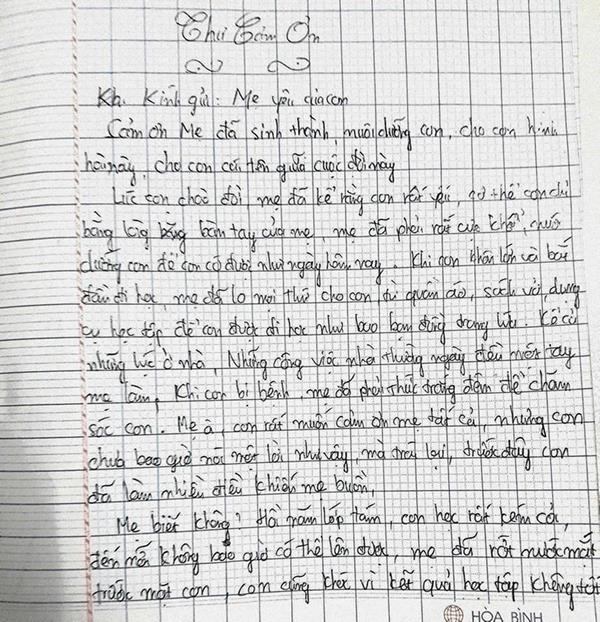 Thư Cảm Ơn
Kh. Kính gửi: Mẹ yêu của con
Cảm ơn Mẹ đã sinh thành, nuôi dưỡng con, cho con hình
hài này, cho con cái tên giữa cuộc đời này
Lúc con chào đời, mẹ đã kể rằng con rất yếu, cơ thể con chỉ
bằng bàn tay của mẹ, mẹ đã phải rất cực khổ, nuôi
dưỡng con để con có được như ngày hôm nay. Khi con khôn lớn và bắt
đầu đi học, mẹ đã lo mọi thứ cho con từ quần áo, sách vở, dụng
cụ học tập để con được đi học như bao bạn đồng trang lứa. Kể cả
những lúc ở nhà, Những công việc nhà thường ngày đều một tay
mẹ làm, Khi con bị bệnh, mẹ đã phải thức trong đêm để chăm
sóc con. Mẹ à, con rất muốn cảm ơn mẹ tất cả, nhưng con
chưa bao giờ nói một lời như vậy, mà trái lại, trước đây con
đã làm nhiều điều khiến mẹ buồn,
Mẹ biết không? Hồi năm lớp tám, con học rất kém cỏi,
đến mức không bao giờ có thể lên được, mẹ đã rớt nước mắt
trước mặt con, con cũng khóc vì kết quả học tập không tốt
HÒA BÌNH